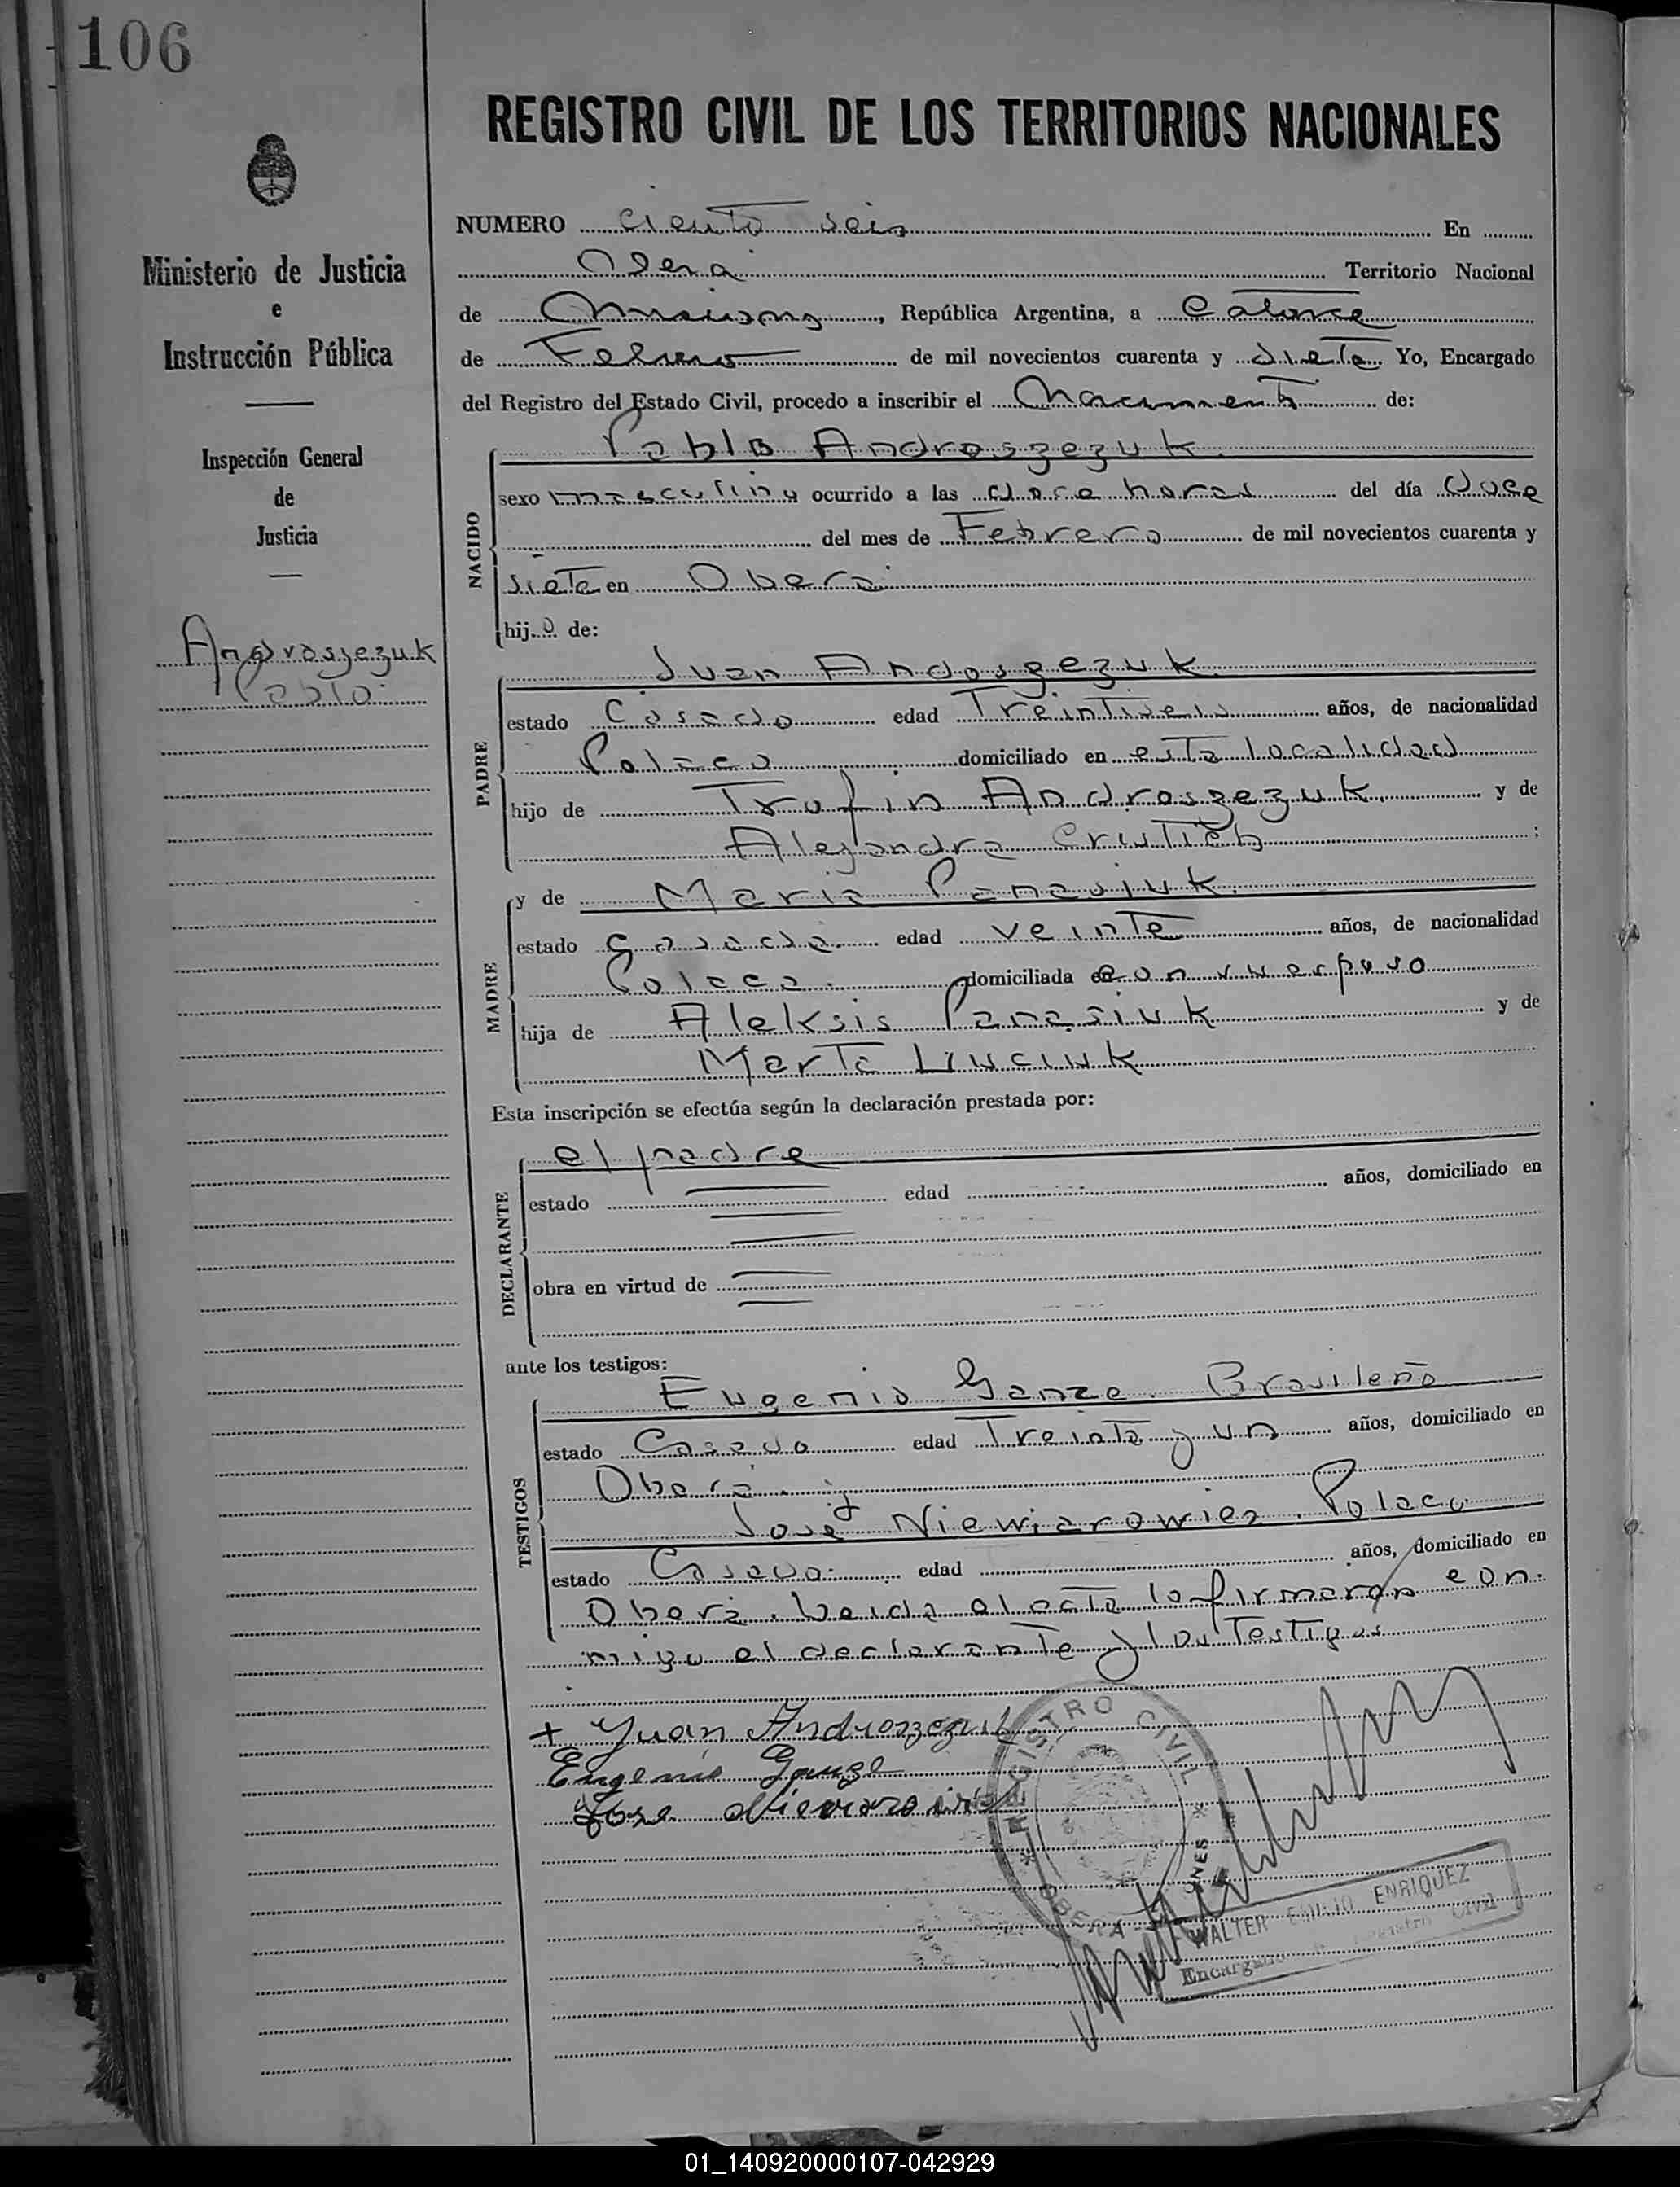 106
REGISTRO CIVIL DE LOS TERRITORIOS NACIONALES
Ministerio de Justicia
e
Instrucción Pública
Inspección General
de
Justicia
Androszezuk
Pablo
NUMERO ciento seis En
Oberá Territorio Nacional
de Misiones, República Argentina, a Catorce
de Febrero de mil novecientos cuarenta y siete Yo, Encargado
del Registro del Estado Civil, procedo a inscribir el Nacimiento de:
NACIDO
Pablo Androszezuk
sexo masculino ocurrido a las doce horas del día Doce
del mes de Febrero de mil novecientos cuarenta y
siete en Oberá
hijo de:
PADRE
Juan Andoszezuk
estado Casado edad Treintiseis años, de nacionalidad
Polaco domiciliado en esta localidad
hijo de Trofin Androszezuk y de
Alejandra ;
MADRE
y de Maria Panasiuk.
estado Casada edad veinte años, de nacionalidad
Polaca. domiciliada en con su esposo
hija de Aleksis Panasiuk y de
Marta Liuciuk
Esta inscripción se efectúa según la declaración prestada por:
DECLARANTE
el padre
estado edad años, domiciliado en
obra en virtud de
ante los testigos:
TESTIGOS
Eugenio Ganze. Brasileño
estado Casado edad Treinta y un años, domiciliado en
Oberá. y
José Niewiarowiez. Polaco
estado Casado. edad años, domiciliado en
Oberá. Leida el acta la firmaron con-
migo el declarante y los Testigos
+ Yuan Androszezuk
Eugenio Ganze
Jose
REGISTRO CIVIL
OBERÁ
WALTER EMILIO ENRIQUEZ
Encargado Registro Civil
01_140920000107-042929